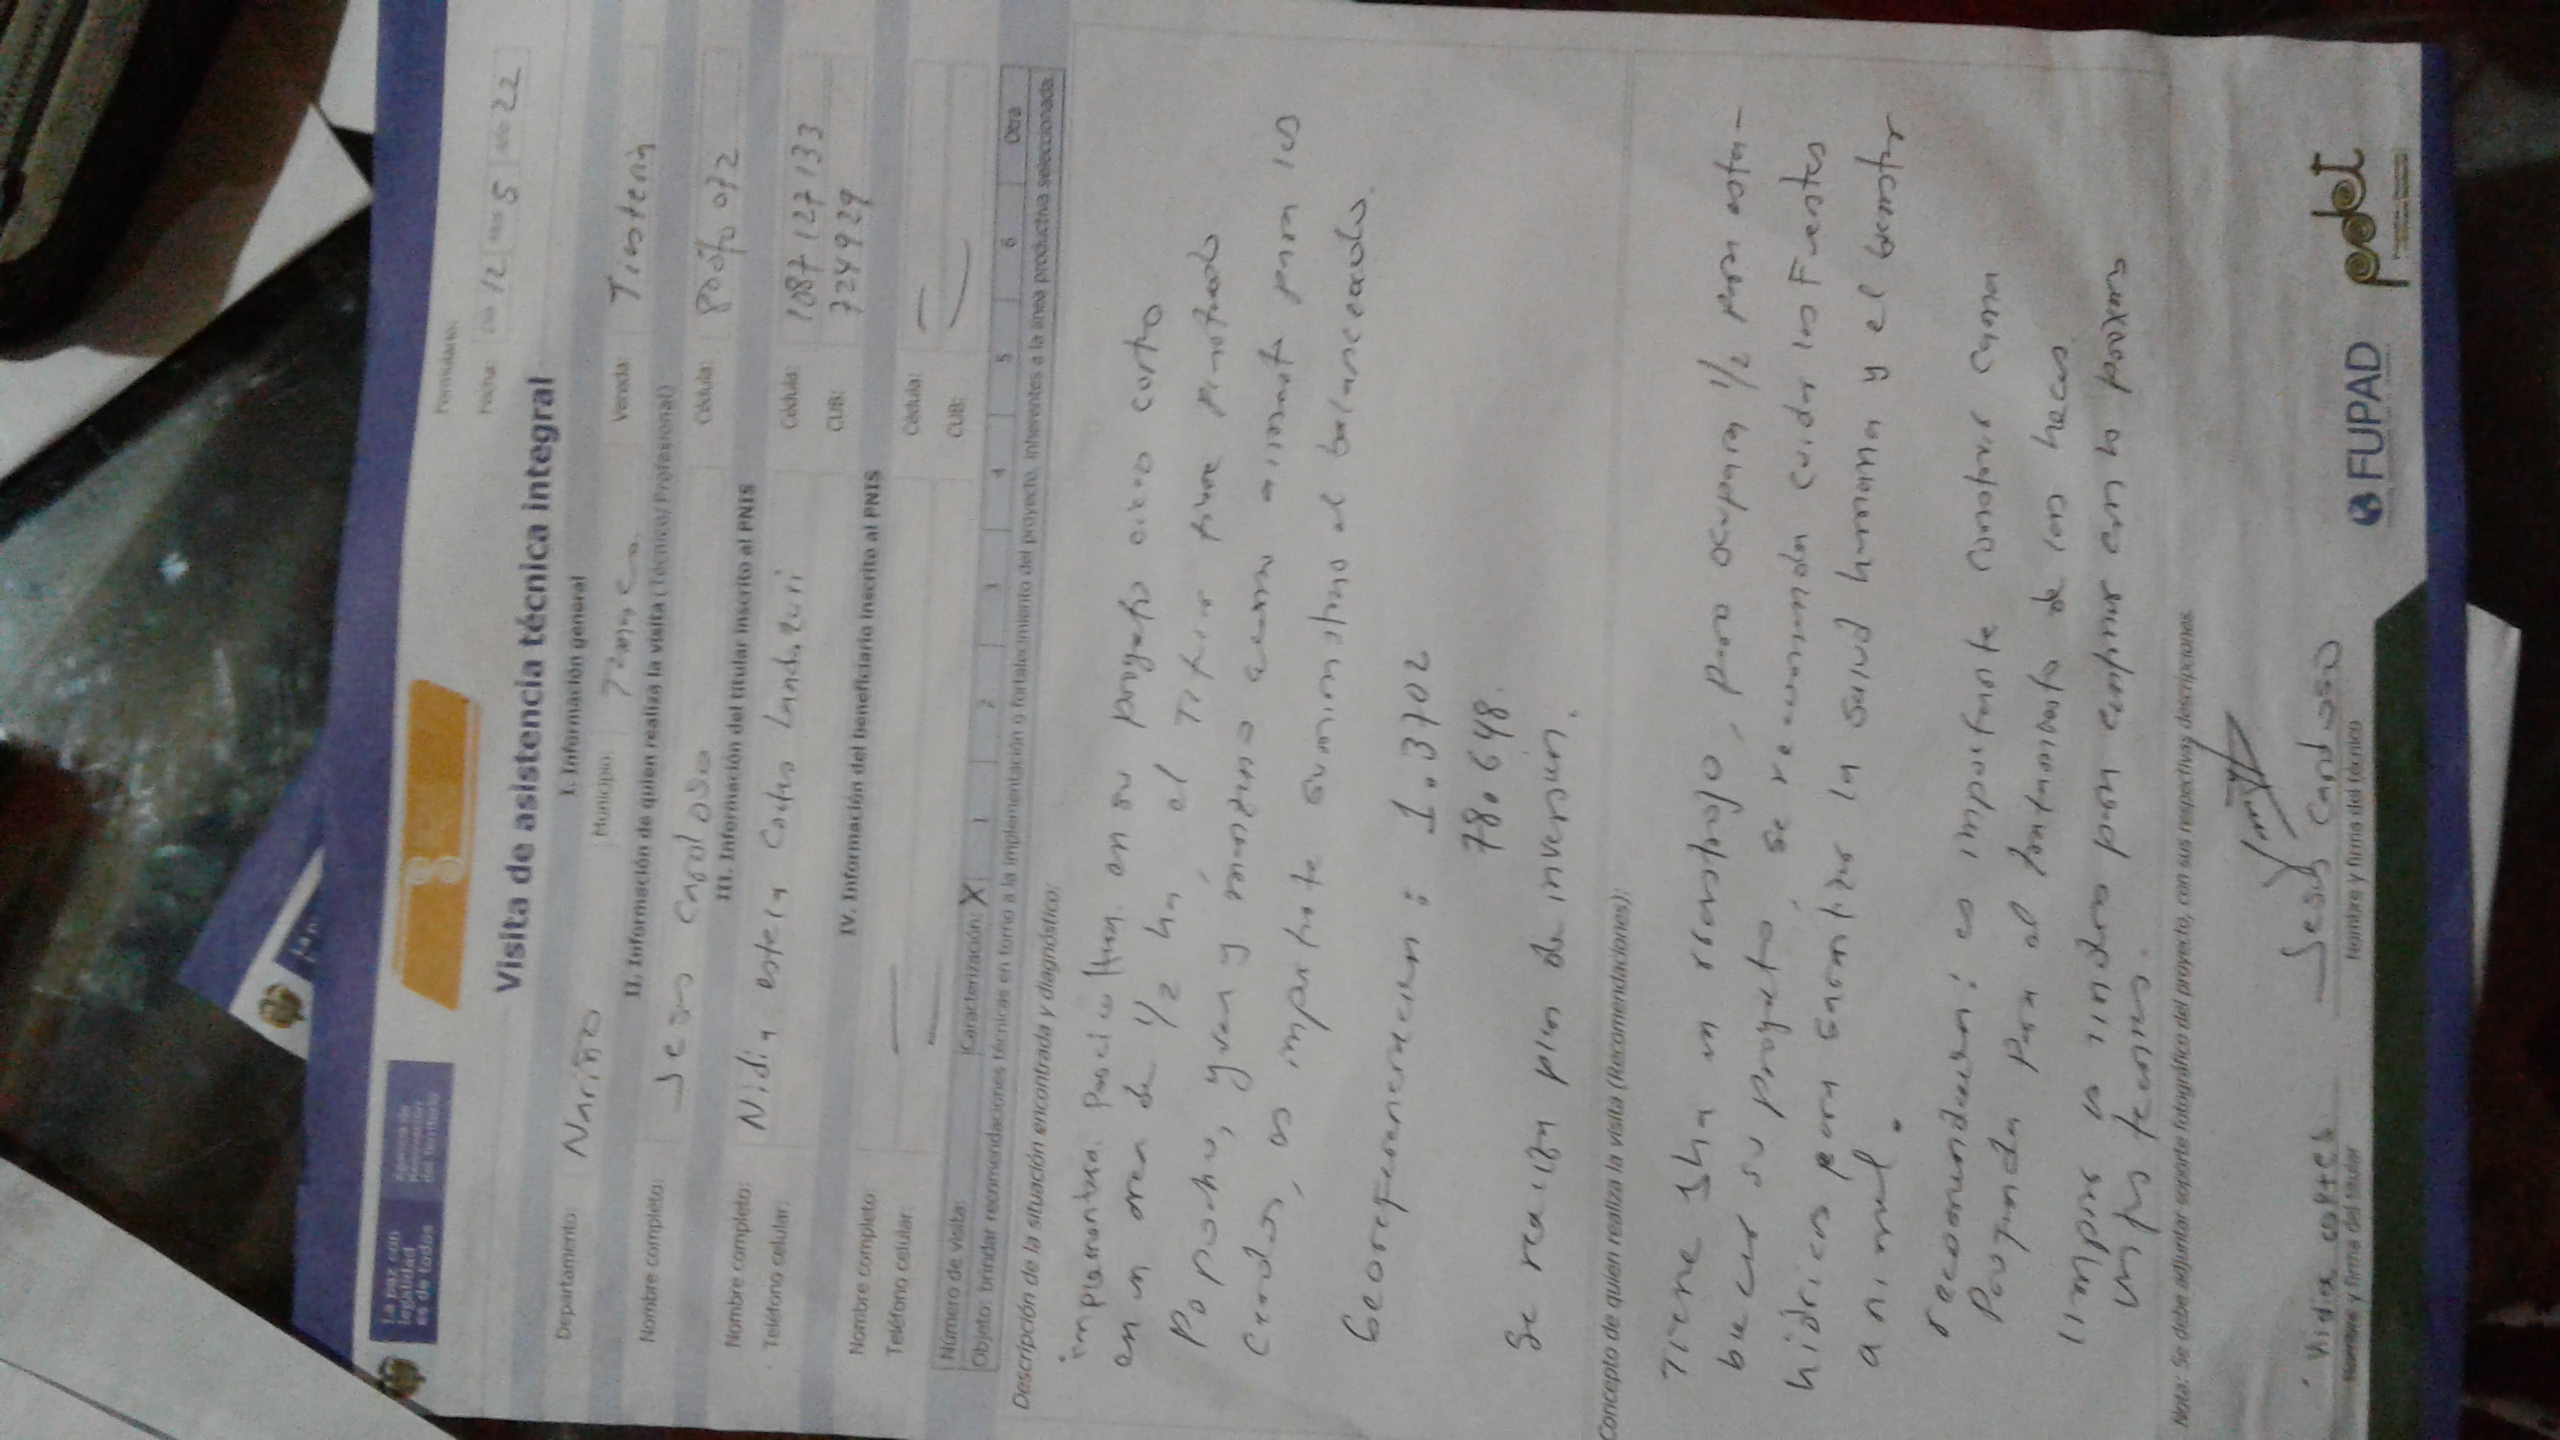 La paz con
legalidad
es de todos
Agencia de
Renovación
del Territorio
Formulario:
Fecha: Día 12 Mes 5 Año 22
Visita de asistencia técnica integral
I. Información general
Departamento: Nariño Municipio: Vereda:
II. Información de quien realiza la visita (Técnico/Profesional)
Nombre completo: Jesus Cardoso Cédula:
III. Información del titular inscrito al PNIS
Nombre completo: Nidia estela Cortes Landazuri Cédula: 1087127133
Teléfono celular: CUB: 724929
IV. Información del beneficiario inscrito al PNIS
Nombre completo: Cédula: —
Teléfono celular: CUB: —
Número de visita: Caracterización: X 1 2 3 4 5 6 Otra
Objeto: brindar recomendaciones técnicas en torno a la implementación o fortalecimiento del proyecto, inherentes a la línea productiva seleccionada.
Descripción de la situación encontrada y diagnóstico:
en su proyecto ciclo corto
en un area de 1/2 ha el tiene
y como alimento para los
Cerdos, es importante suministrar el balanceado.
Georeferenciacion: 1.3702
78.648.
Se realiza plan de inversión.
Concepto de quien realiza la visita (Recomendaciones):
Tiene 1ha en rrastrojo, para ocupar 1/2 para esta-
blecer su proyecto, se recomienda cuidar las Fuentes
hídricas para garantizar la salud humana y el bienestar
animal.
recomendación: es importante construir
para el tratamiento de las heces.
limpiar para empezar con la próxima
Nota: Se debe adjuntar soporte fotográfico del proyecto, con sus respectivas descripciones.
Nidia cortes
Nombre y firma del titular
Jesus Cardoso
Nombre y firma del técnico
FUPAD
pdet